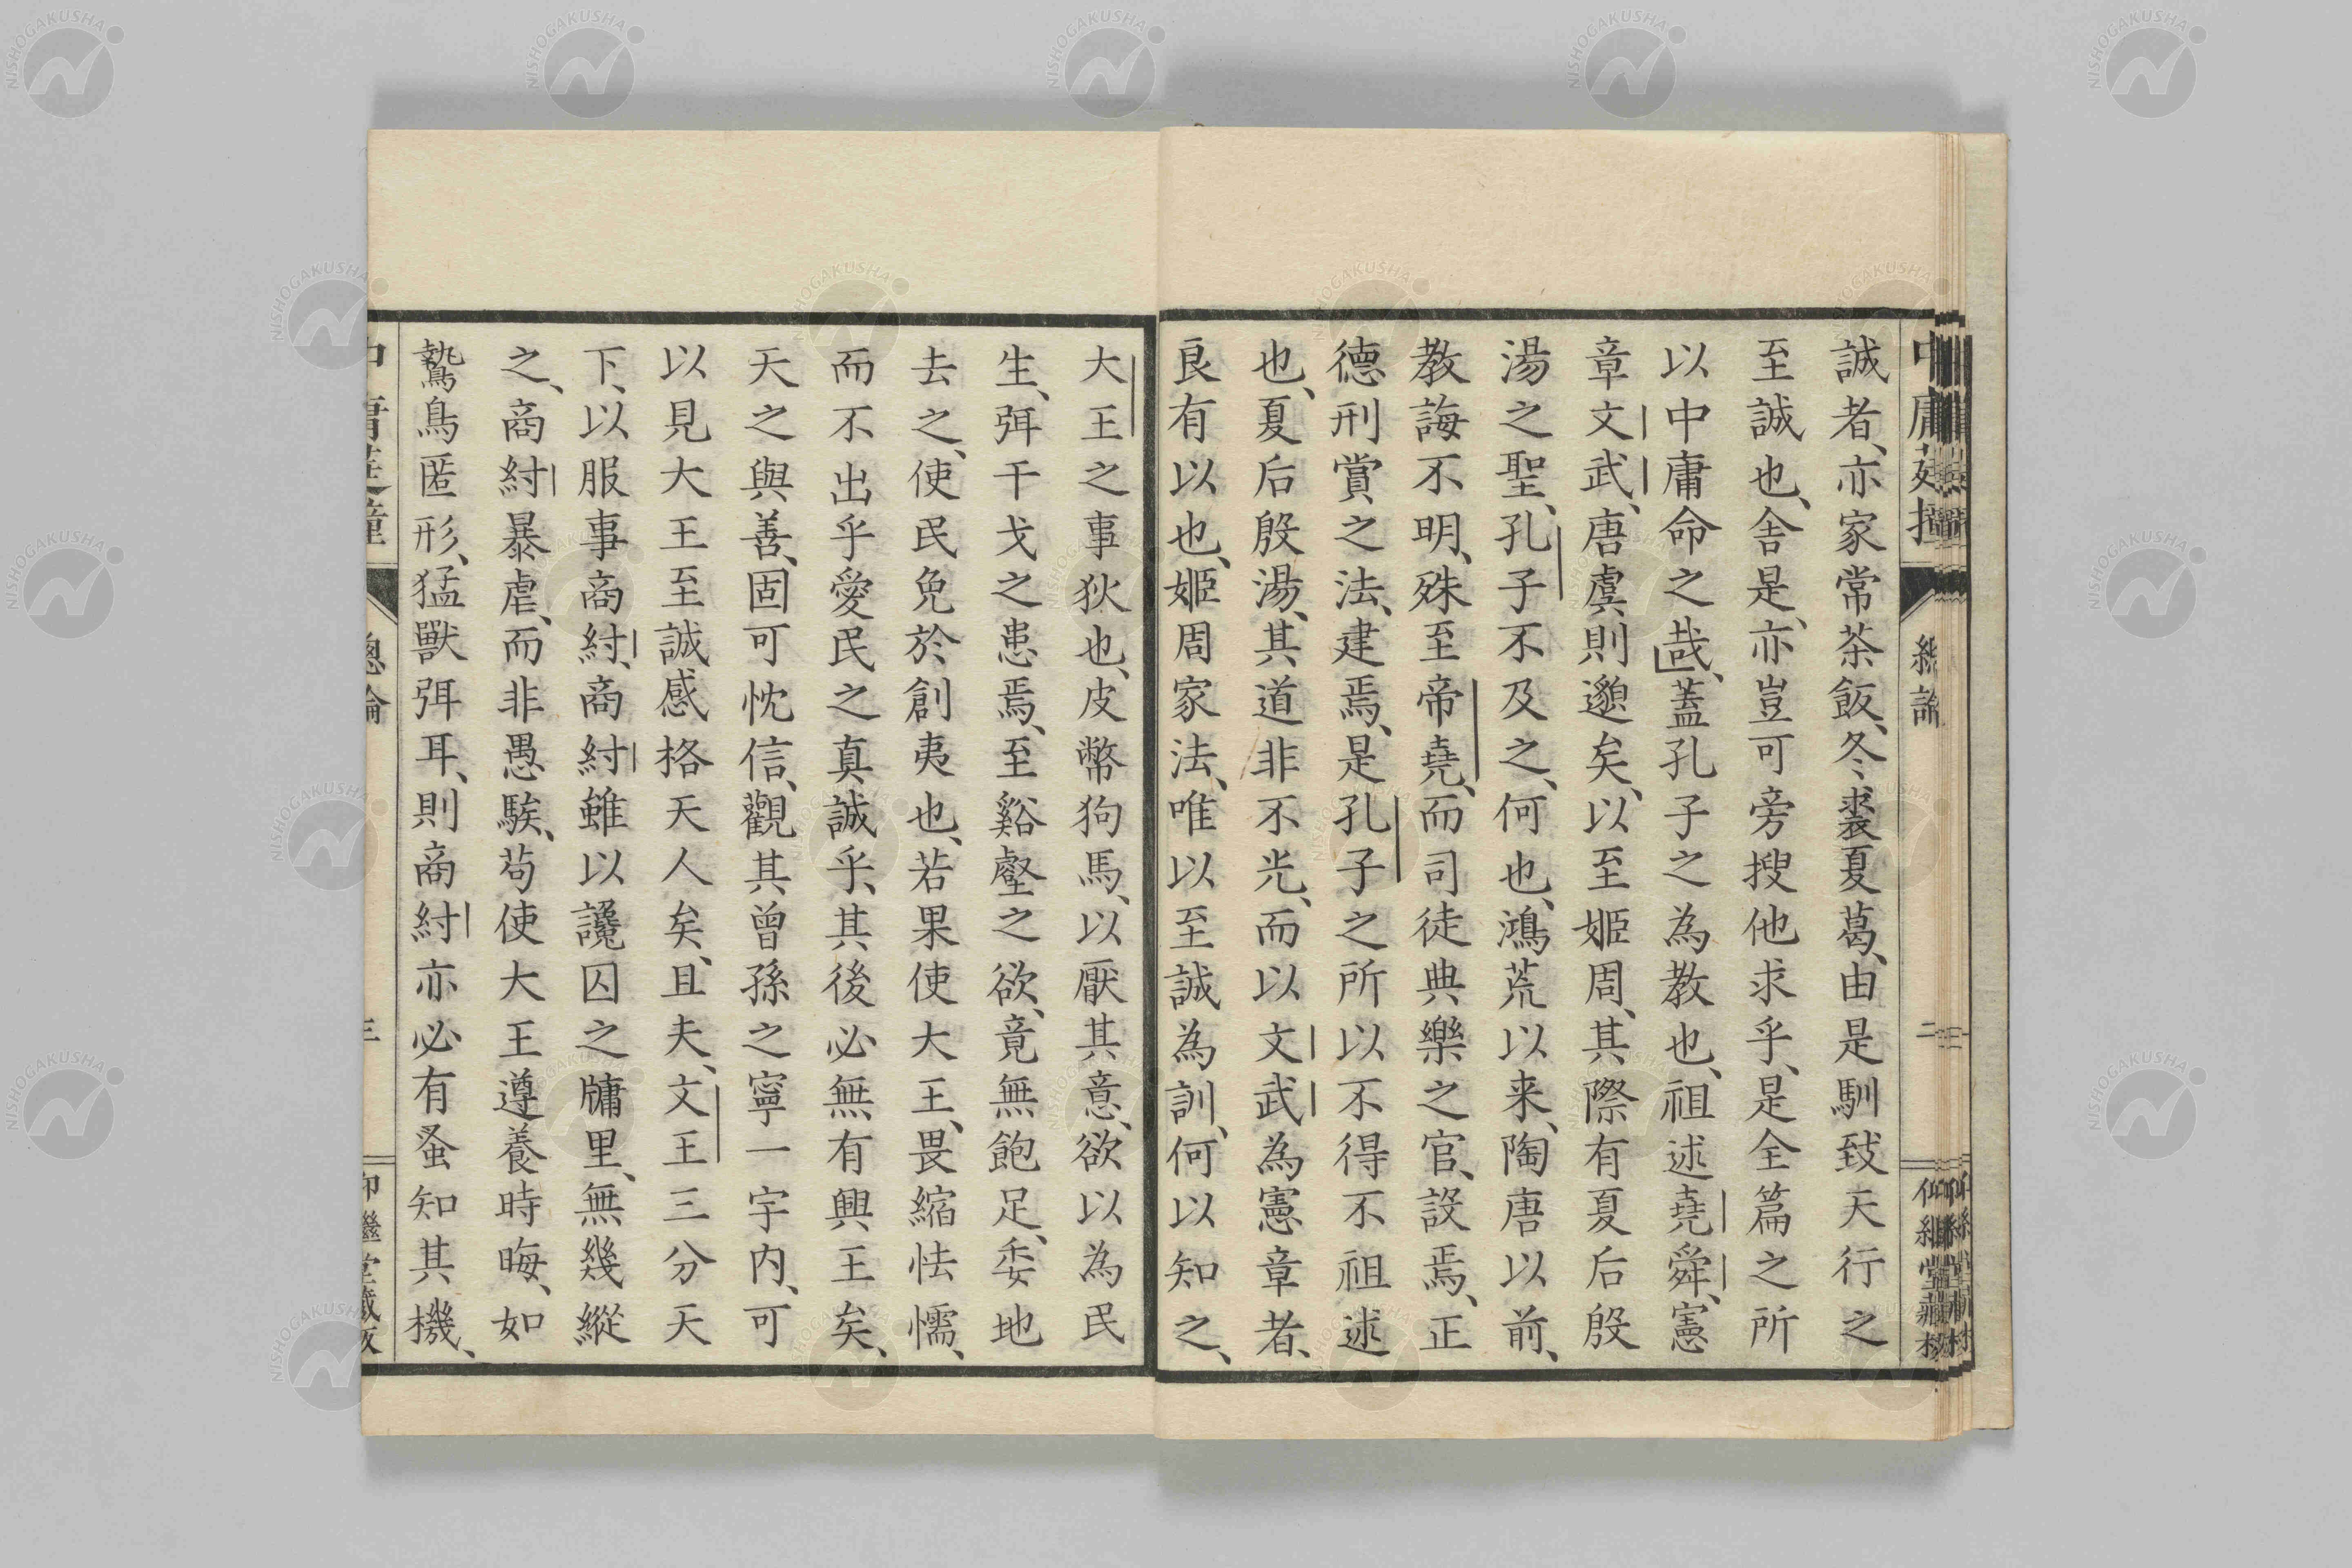 誠者、亦家常茶飯、冬裘夏葛、由是馴致天行之
至誠也、舍是、亦豈可旁搜他求乎、是全篇之所
以中庸命之哉、蓋孔子之為教也、祖述堯舜、憲
章文武、唐虞則邈矣、以至姬周、其際有夏后殷
湯之聖、孔子不及之、何也、鴻荒以来、陶唐以前、
教誨不明、殊至帝堯、而司徒典樂之官、設焉、正
德刑賞之法、建焉、是孔子之所以不得不祖述
也、夏后殷湯、其道非不光、而以文武為憲章者、
良有以也、姬周家法、唯以至誠為訓、何以知之、
大王之事狄也、皮幣狗馬、以厭其意、欲以為民
生、弭干戈之患焉、至谿壑之欲、竟無飽足、委地
去之、使民免於創夷也、若果使大王、畏縮怯懦、
而不出乎愛民之真誠乎、其後必無有興王矣、
天之與善、固可忱信、觀其曾孫之寧一宇内、可
以見大王至誠感格天人矣、且夫、文王三分天
下、以服事商紂、商紂雖以讒囚之牖里、無幾縱
之、商紂暴虐、而非愚騃、苟使大王遵養時晦、如
鷙鳥匿形、猛獸弭耳、則商紂亦必有蚤知其機、
總論
三
NISHOGAKUSHA